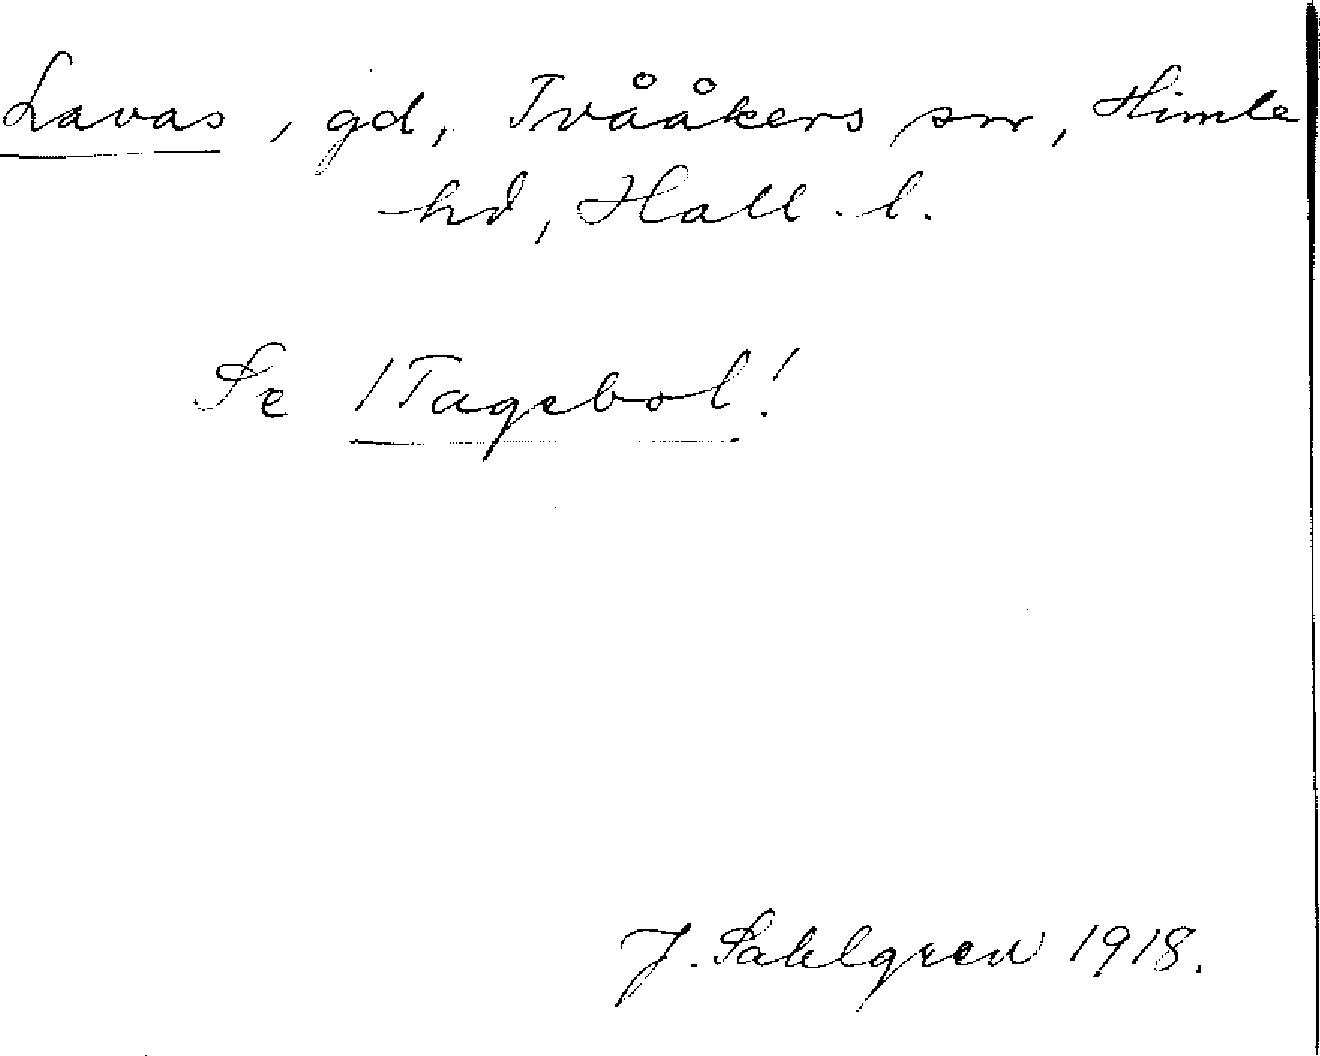 Lavas, gd, Tvååkers sn, Himle
hd, Hall. l.
Se /Tagebol!
J. Sahlgren 1918.